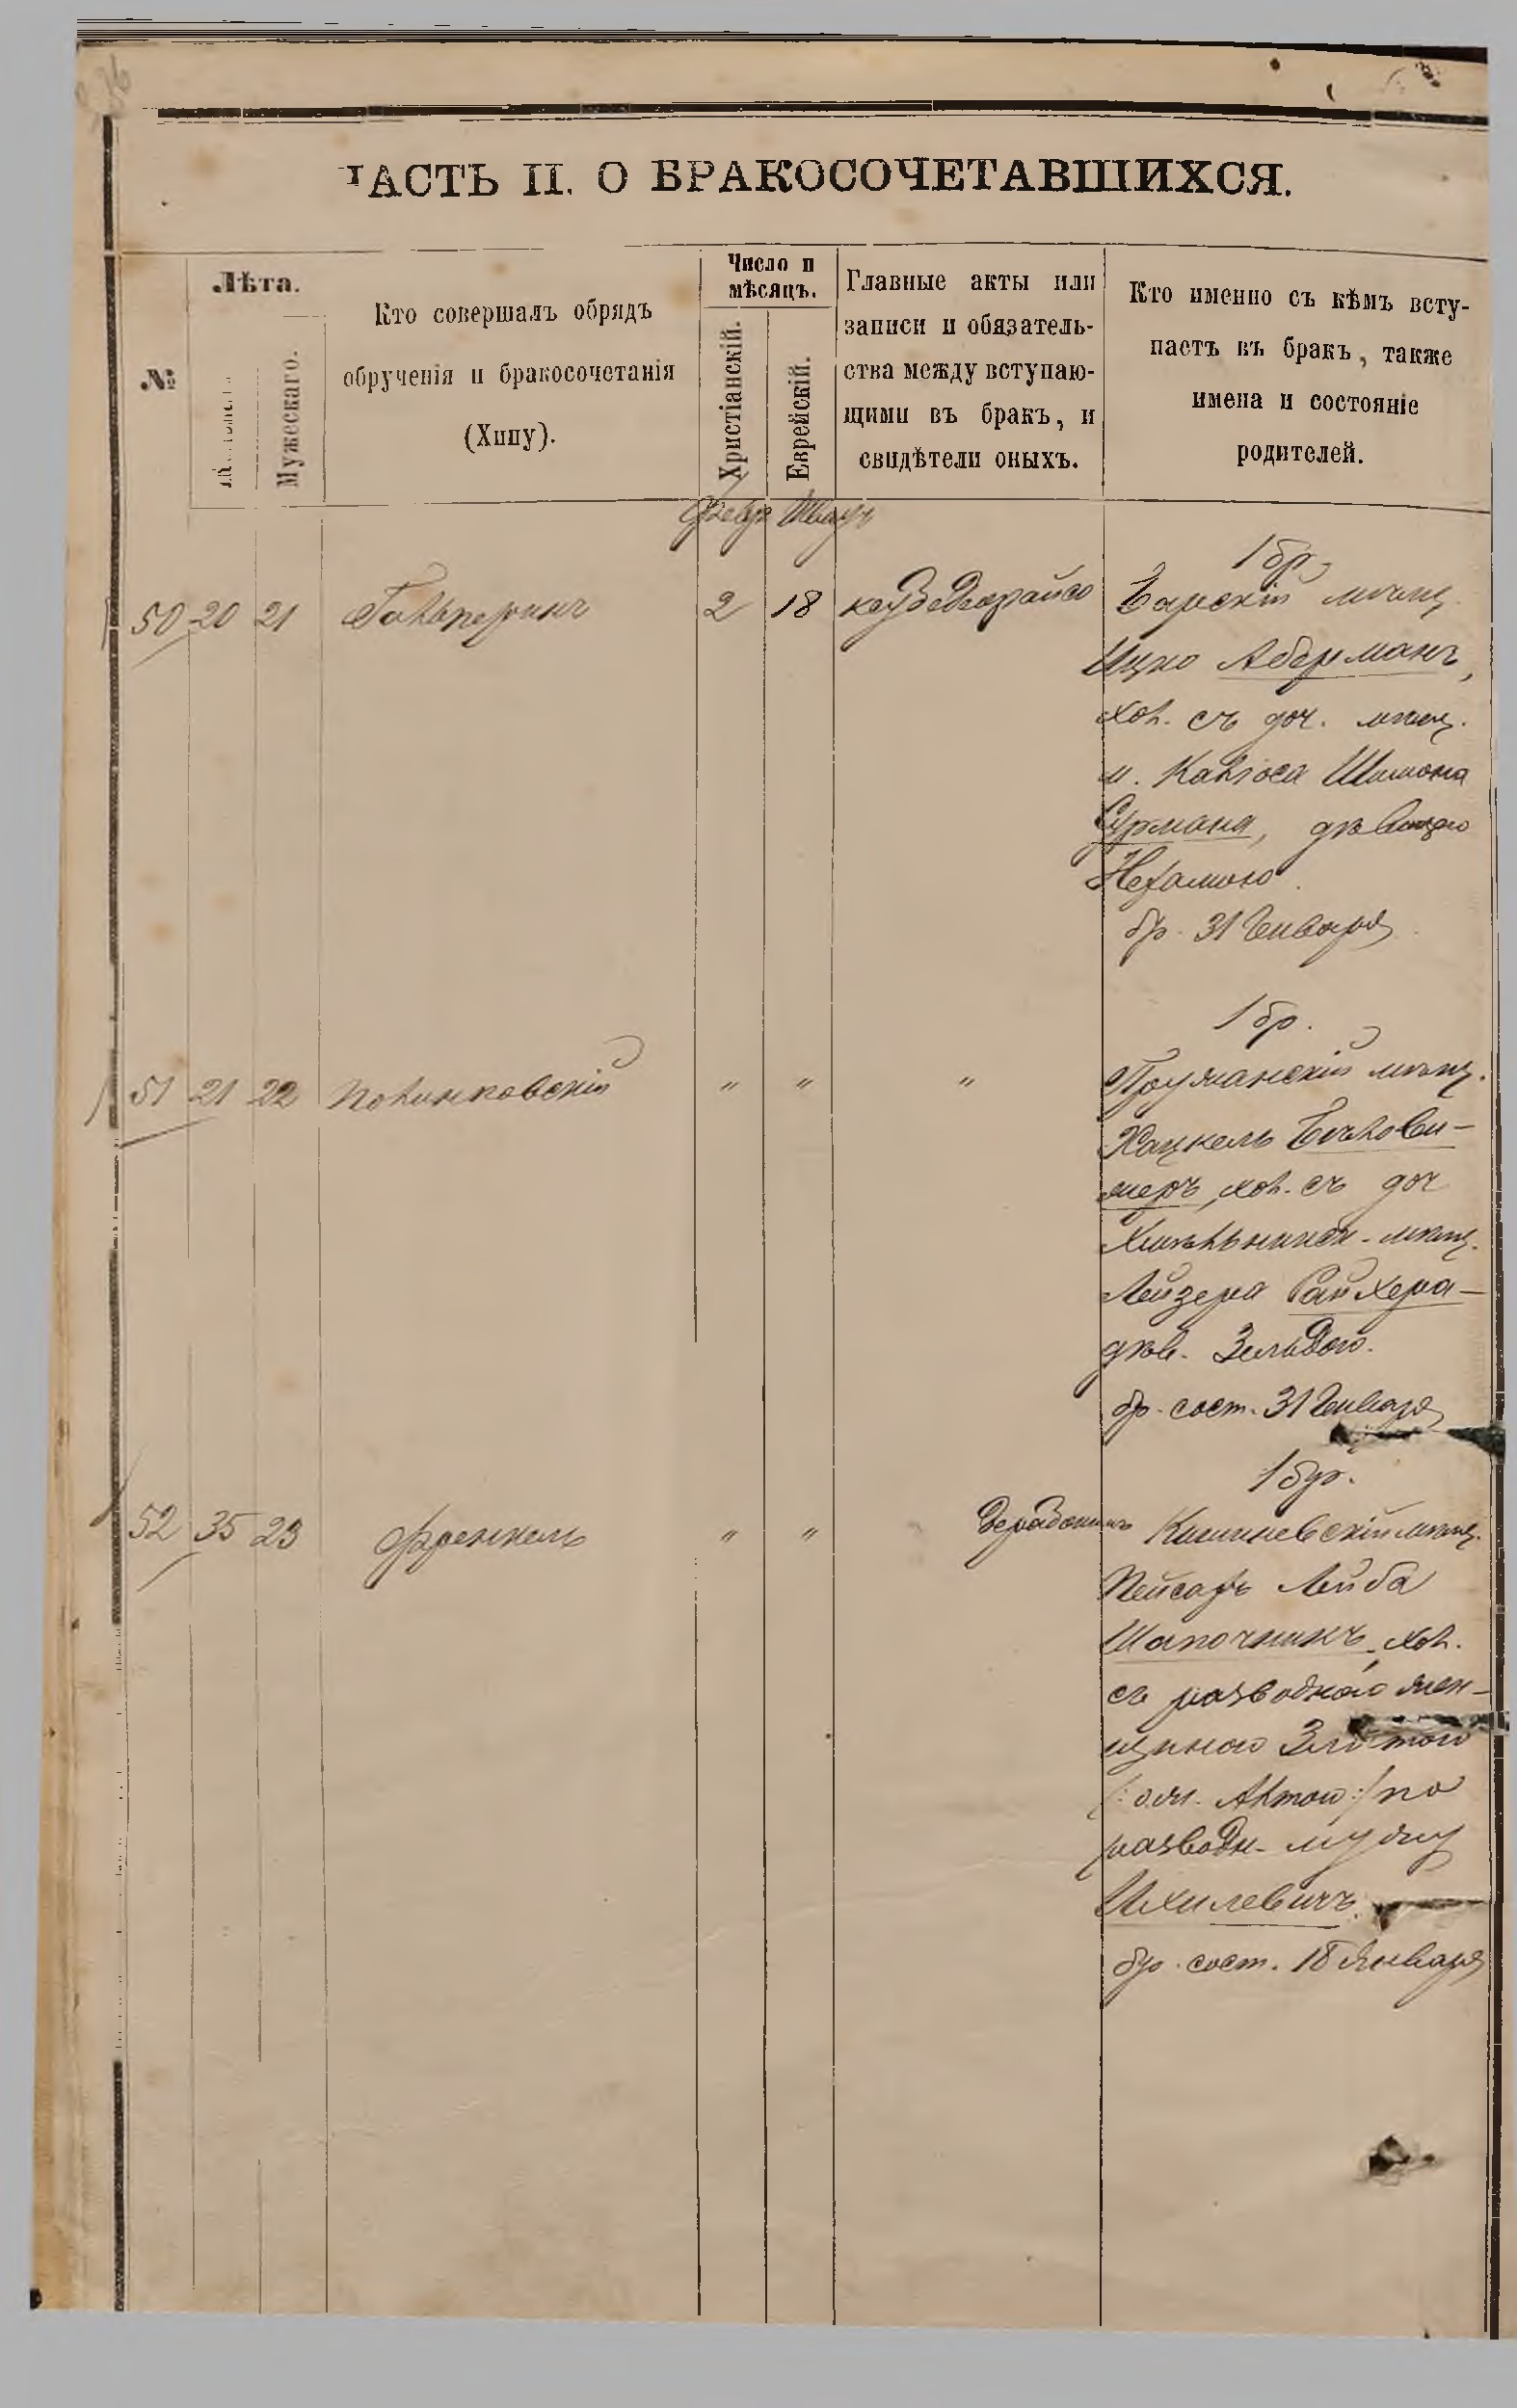 ЧАСТЬ II. О БРАКОСОЧЕТАВШИХСЯ.
№
Лѣта.
Мужескаго.
Кто совершалъ обрядъ
обрученія и бракосочетанія
(Хипу).
Число и
мѣсяцъ.
Христіанскій.
Еврейскій.
Главные акты или
записи и обязатель-
ства между вступаю-
щими въ бракъ, и
свидѣтели оныхъ.
Кто именно съ кѣмъ всту-
паетъ въ бракъ, также
имена и состояніе
родителей.
Февр
1 бр.
50 20 21 Гольперинъ 2 18 Барскій мѣщ.
Ицко Аберманъ,
хол. съ доч. мѣщ.
м. Калюса Шимона
Сурмана, дѣвицею
Нехамою.
бр. 31 Генваря
1 бр.
51 21 22 Полинковскій " " " мѣщ.
Хацкель
меръ, хол. съ доч
мѣщ.
Лейзера Райхера-
дѣв. Зельдою.
бр. сост. 31 Генваря
1 бр.
52 35 23 Френкель " " Кишиневскій мѣщ.
Пейсахъ Лейба
Шапочникъ, хол.
съ разводною жен-
щиною Златою
по
разводн. мужу
Ихилевичъ.
бр. сост. 18 Января